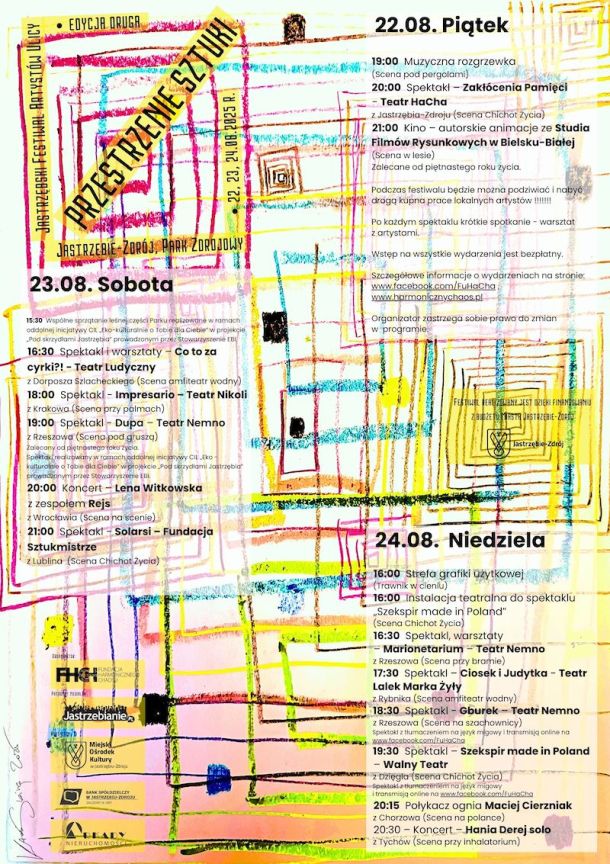 Jastrzębski Festiwal Artystów Ulicy
• EDYCJA DRUGA
PRZESTRZENIE SZTUKI
• 22, 23, 24.08.2025 R.
Jastrzębie-Zdrój, Park Zdrojowy
22.08. Piątek
19:00 Muzyczna rozgrzewka
(Scena pod pergolami)
20:00 Spektakl – Zakłócenia Pamięci
- Teatr HaCha
z Jastrzębia-Zdroju (Scena Chichot Życia)
21:00 Kino – autorskie animacje ze Studia
Filmów Rysunkowych w Bielsku-Białej
(Scena w lesie)
Zalecane od piętnastego roku życia.
Podczas festiwalu będzie można podziwiać i nabyć
drogą kupna prace lokalnych artystów !!!!!!!
Po każdym spektaklu krótkie spotkanie - warsztat
z artystami.
Wstęp na wszystkie wydarzenia jest bezpłatny.
Szczegółowe informacje o wydarzeniach na stronie:
www.facebook.com/FuHaCha
www.harmonicznychaos.pl
Organizator zastrzega sobie prawo do zmian
w programie.
23.08. Sobota
15:30 Wspólne sprzątanie leśnej części Parku realizowane w ramach
oddolnej inicjatywy CIL „Eko-kulturalnie o Tobie dla Ciebie" w projekcie
„Pod skrzydłami Jastrzębia" prowadzonym przez Stowarzyszenie EBI.
16:30 Spektakl i warsztaty – Co to za
cyrki?! - Teatr Ludyczny
z Dorposza Szlacheckiego (Scena amfiteatr wodny)
18:00 Spektakl - Impresario – Teatr Nikoli
z Krakowa (Scena przy palmach)
19:00 Spektakl – Dupa – Teatr Nemno
z Rzeszowa (Scena pod gruszą)
Zalecane od piętnastego roku życia.
Spektakl realizowany w ramach oddolnej inicjatywy CIL „Eko -
kulturalnie o Tobie dla Ciebie" w projekcie „Pod skrzydłami Jastrzębia"
prowadzonym przez Stowarzyszenie EBI.
20:00 Koncert – Lena Witkowska
z zespołem Rejs
z Wrocławia (Scena na scenie)
21:00 Spektakl - Solarsi – Fundacja
Sztukmistrze
z Lublina (Scena Chichot Życia)
Festiwal realizowany jest dzięki finansowaniu
z budżetu Miasta Jastrzębie-Zdrój
Jastrzębie-Zdrój
24.08. Niedziela
16:00 Strefa grafiki użytkowej
(Trawnik w cieniu)
16:00 Instalacja teatralna do spektaklu
„Szekspir made in Poland"
(Scena Chichot Życia)
16:30 Spektakl, warsztaty
– Marionetarium – Teatr Nemno
z Rzeszowa (Scena przy bramie)
17:30 Spektakl – Ciosek i Judytka - Teatr
Lalek Marka Żyły
z Rybnika (Scena amfiteatr wodny)
18:30 Spektakl - Gburek – Teatr Nemno
z Rzeszowa (Scena na szachownicy)
Spektakl z tłumaczeniem na język migowy i transmisją online na
www.facebook.com/FuHaCha
19:30 Spektakl – Szekspir made in Poland
– Walny Teatr
z Dzięgla (Scena Chichot Życia)
Spektakl z tłumaczeniem na język migowy
i transmisją online na www.facebook.com/FuHaCha
20:15 Połykacz ognia Maciej Cierzniak
z Chorzowa (Scena na polance)
20:30 – Koncert – Hania Derej solo
z Tychów (Scena przy inhalatorium)
FHCH FUNDACJA
HARMONICZNEGO
CHAOSU
Jastrzębianie.PL
Miejski
Ośrodek
Kultury
w Jastrzębiu-Zdroju
BANK SPÓŁDZIELCZY
W JASTRZĘBIU-ZDROJU
ARKADY
NIERUCHOMOŚCI